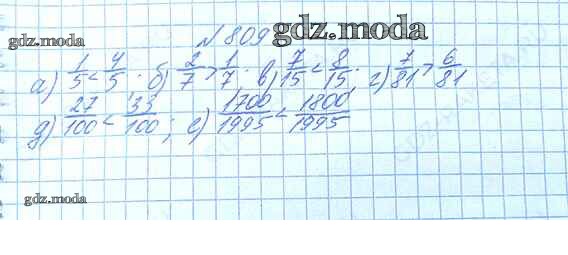 gdz.moda
№809 gdz.moda
а) 1/5 < 4/5. б) 2/7 > 1/7. в) 7/15 < 8/15. г) 7/81 > 6/81
д) 27/100 < 33/100; е) 1700/1995 < 1800/1995
gdz.moda
gdz.moda